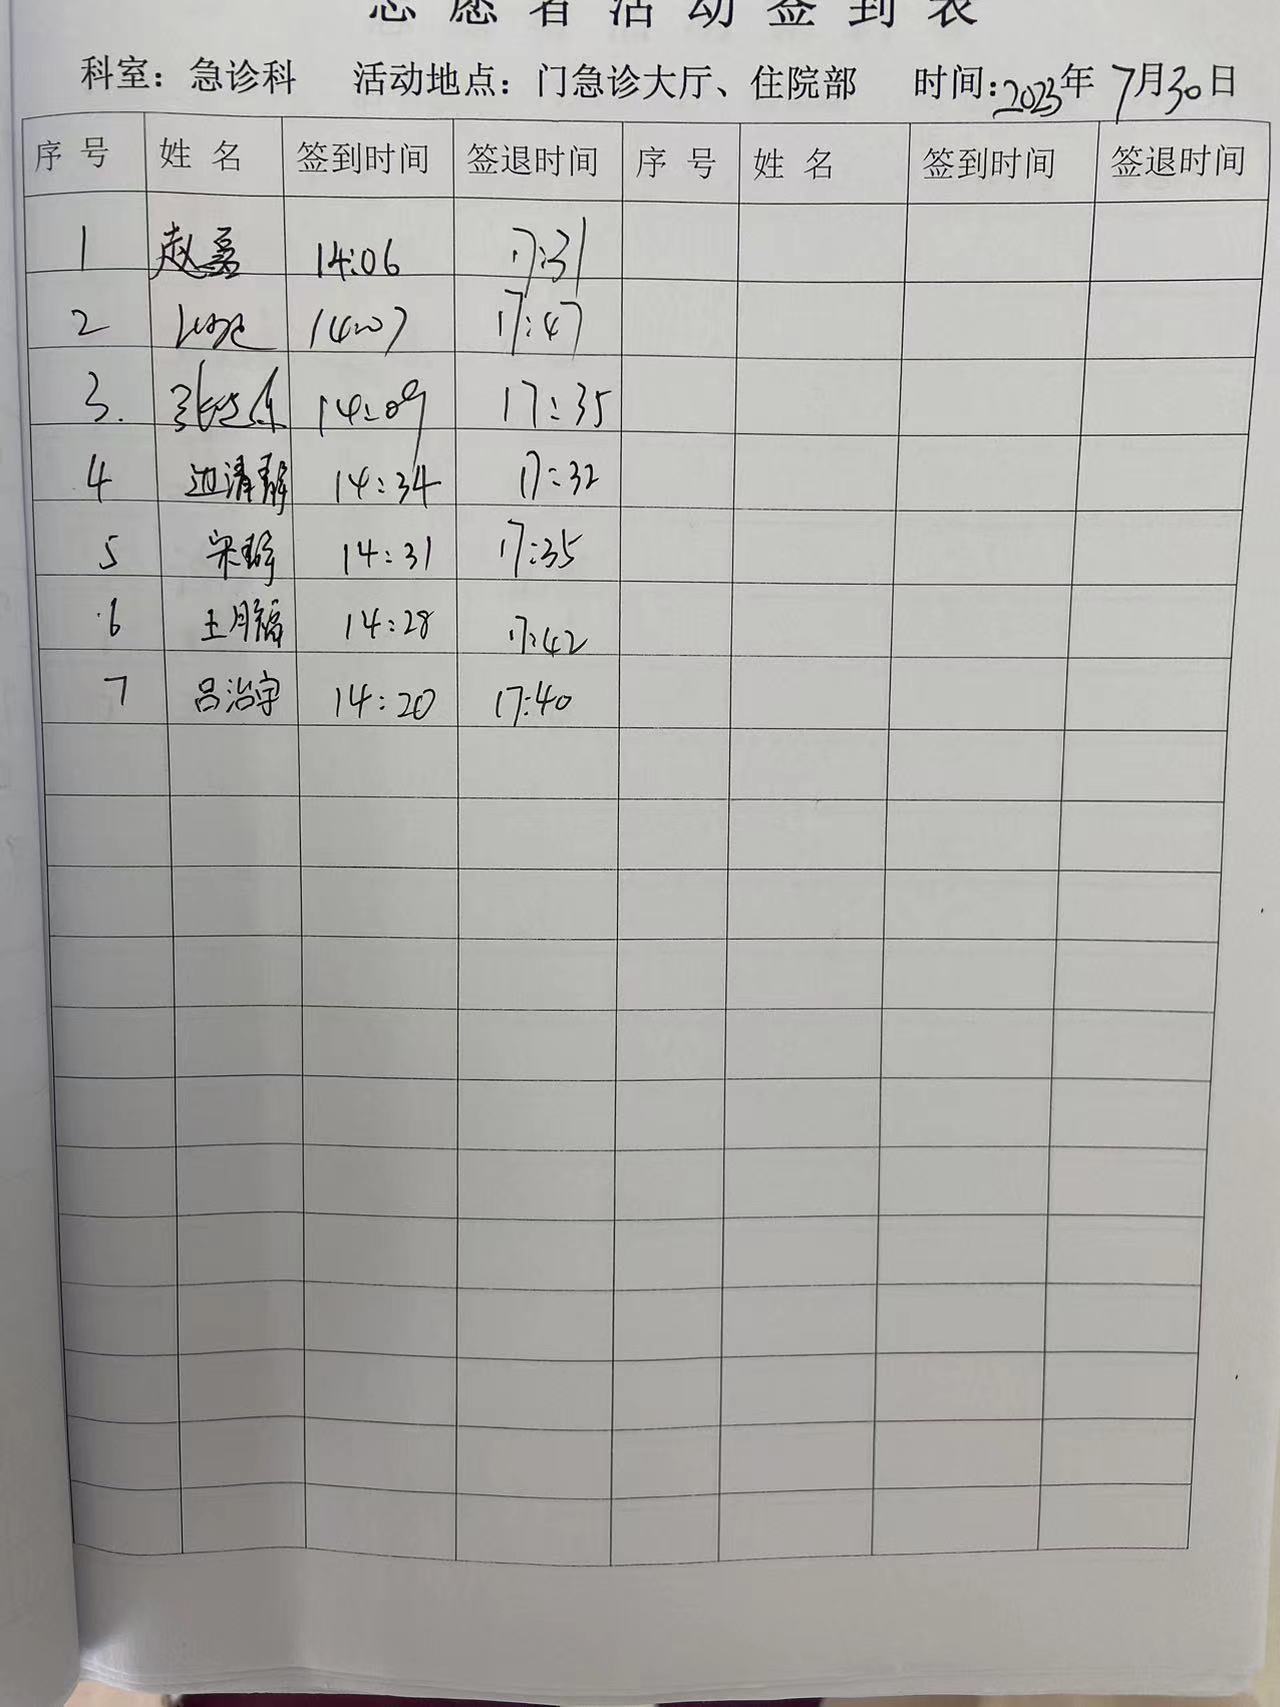 志愿者活动签到表
科室：急诊科 活动地点：门急诊大厅、住院部 时间：2023年7月30日
序号 姓名 签到时间 签退时间 序号 姓名 签到时间 签退时间
1 赵 14:06 17:31
2 14:07 17:47
3. 张 14:09 17:35
4 边清静 14:34 17:32
5 宋静 14:31 17:35
6 王月福 14:28 17:42
7 吕治宇 14:20 17:40